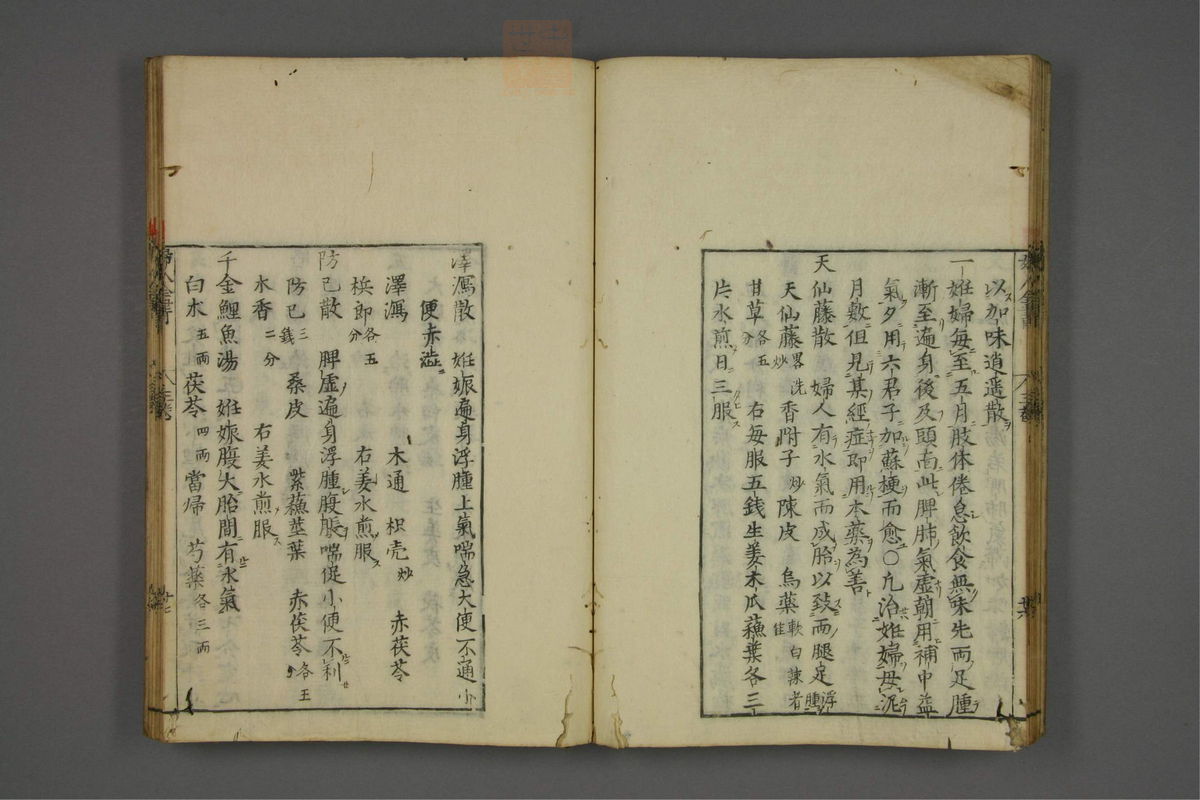 以加味逍遥散
一妊婦毎至五月肢体倦怠飲食無味先両足腫
漸至遍身後及頭面此脾肺氣虚朝用補中益
氣夕用六君子加蘇梗而愈〇凢治妊婦毋泥
月數但見某經症即用本藥為善
天仙藤散 婦人有水氣而成胎以致両腿足浮腫
天仙藤畧洗炒 香附子炒 陳皮 烏薬軟白辣者佳
甘草各五分 右毎服五銭生姜木瓜蘓葉各三
片水煎日三服
澤瀉散 妊娠遍身浮腫上氣喘急大便不通小
便赤澁
澤瀉 木通 枳壳炒 赤茯苓
梹郎各五分 右姜水煎服
防已散 脾虚遍身浮腫腹脹喘促小便不利
防已三銭 桑皮 紫蘓莖葉 赤茯苓各五分
木香二分 右姜水煎服
千金鯉魚湯 妊娠腹大胎間有水氣
白朮五両 茯苓四両 當帰 芍薬各三両